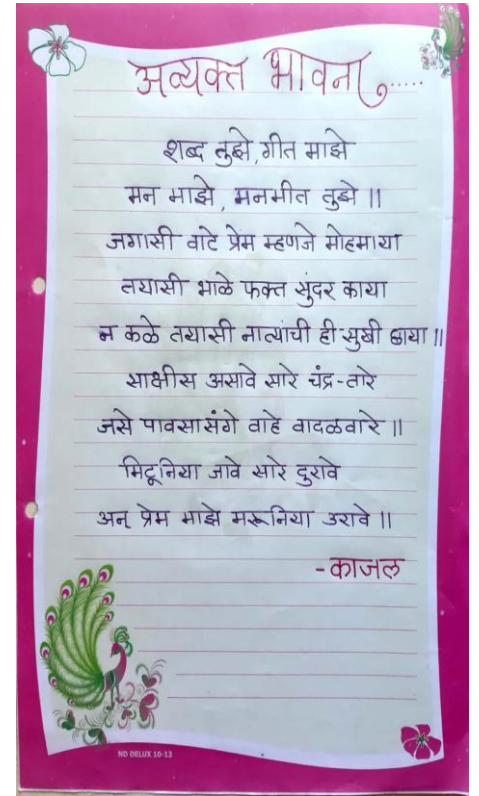 अव्यक्त भावना......
शब्द तुझे, गीत माझे
मन माझे, मनमीत तुझे ॥
जगासी वाटे प्रेम म्हणजे मोहमाया
तयासी भाळे फक्त सुंदर काया
न कळे तयासी नात्यांची ही सुखी छाया ॥
साक्षीस असावे सारे चंद्र-तारे
जसे पावसासंगे वाहे वादळवारे ॥
मिटूनिया जावे सारे दुरावे
अन् प्रेम माझे मरूनिया उरावे ॥
-काजल
ND DELUX 10-13